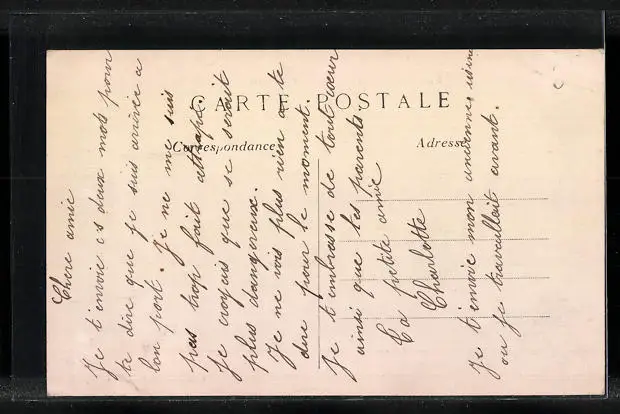 CARTE POSTALE
Correspondance
Adresse
Chere amie
Je t'envoie cs deux mots pour
te dire que je suis arrivée a
bon port. Je ne me suis
pas trop fait attrapé
Je croyais que se serait
plus dangereux.
Je ne vois plus rien a te
dire pour le moment.
Je t'embrasse de tout cœur
ainsi que tes parents
Ta petite amie
Charlotte
Je t'envoie mon ancienne usine
ou je travaillait avant.